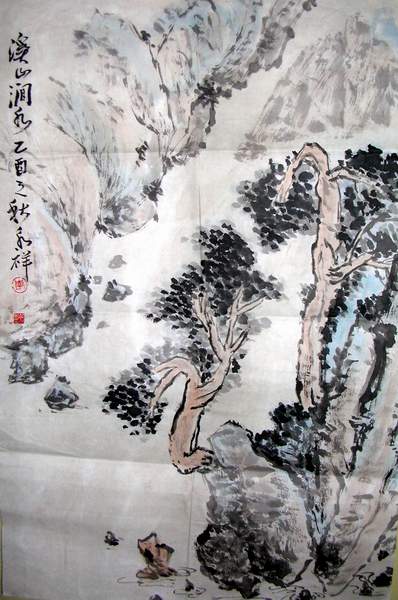 溪山澗水乙酉之秋永祥